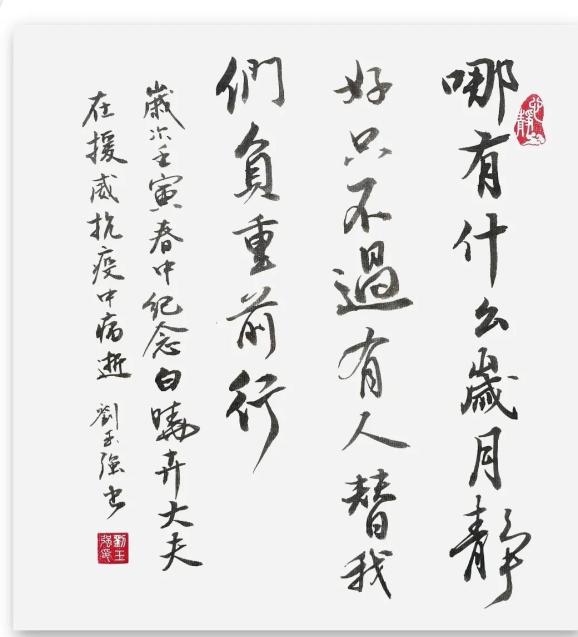 哪有什么歲月靜
好只不過有人替我
們負重前行
歲次壬寅春中纪念白曉卉大夫
在援威抗疫中病逝 劉玉強书
劉玉強印